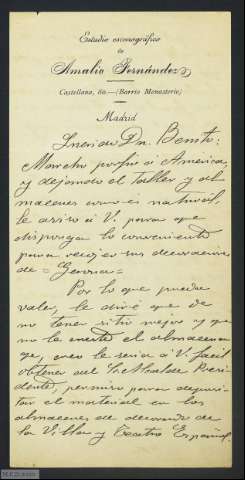 Estudio escenográfico
de
Amalio Fernández
Castellana, 80.—(Barrio Monasterio)
Madrid
Dn. Benito:
Marcho por fin á America,
y dejando el Taller y al
macenes como es natural,
le aviso á V. para que
disponga lo conveniente
para recojer sus decoraciones
de = Gerona =
Por lo que pueda
valer, le diré que de
no tener sitio mejor y que
no le cueste el almacena
ge, creo le seria á V. facil
obtener del Sr. Alcalde Presi
dente, permiso para deposi
tar el material en los
almacenes de decorado de
la Villa y Teatro Español.